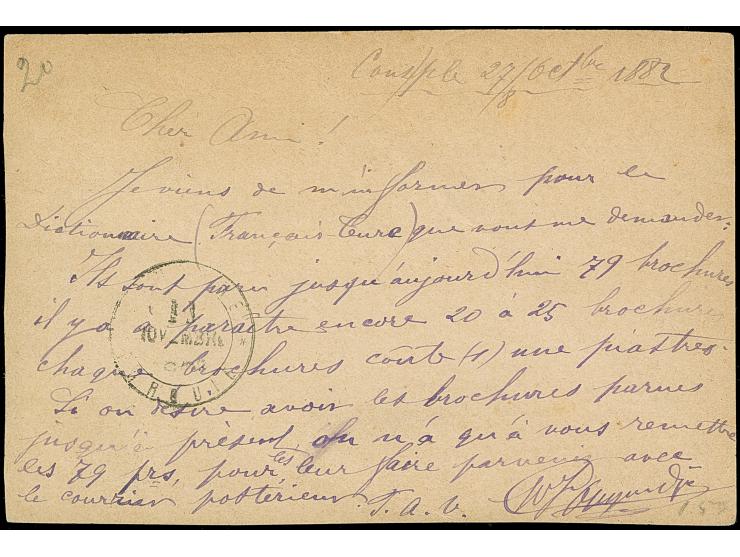 20
Constple 27/8 Octbre 1882
Cher Ami!
Je viens de m'informer pour le
Dictionnaire (Français-Turc) que vous me demandez:
Ils sont paru jusqu'aujourd'hui 79 brochures
il y a à paraître encore 20 à 25 brochures
chaque brochures coûte (1) une piastres.
Si on désire avoir les brochures parues
jusqu'à présent, on n'a qu'à vous remettre
les 79 prs, pour les leur faire parvenir avec
le courrier postérieur. T. A. V.